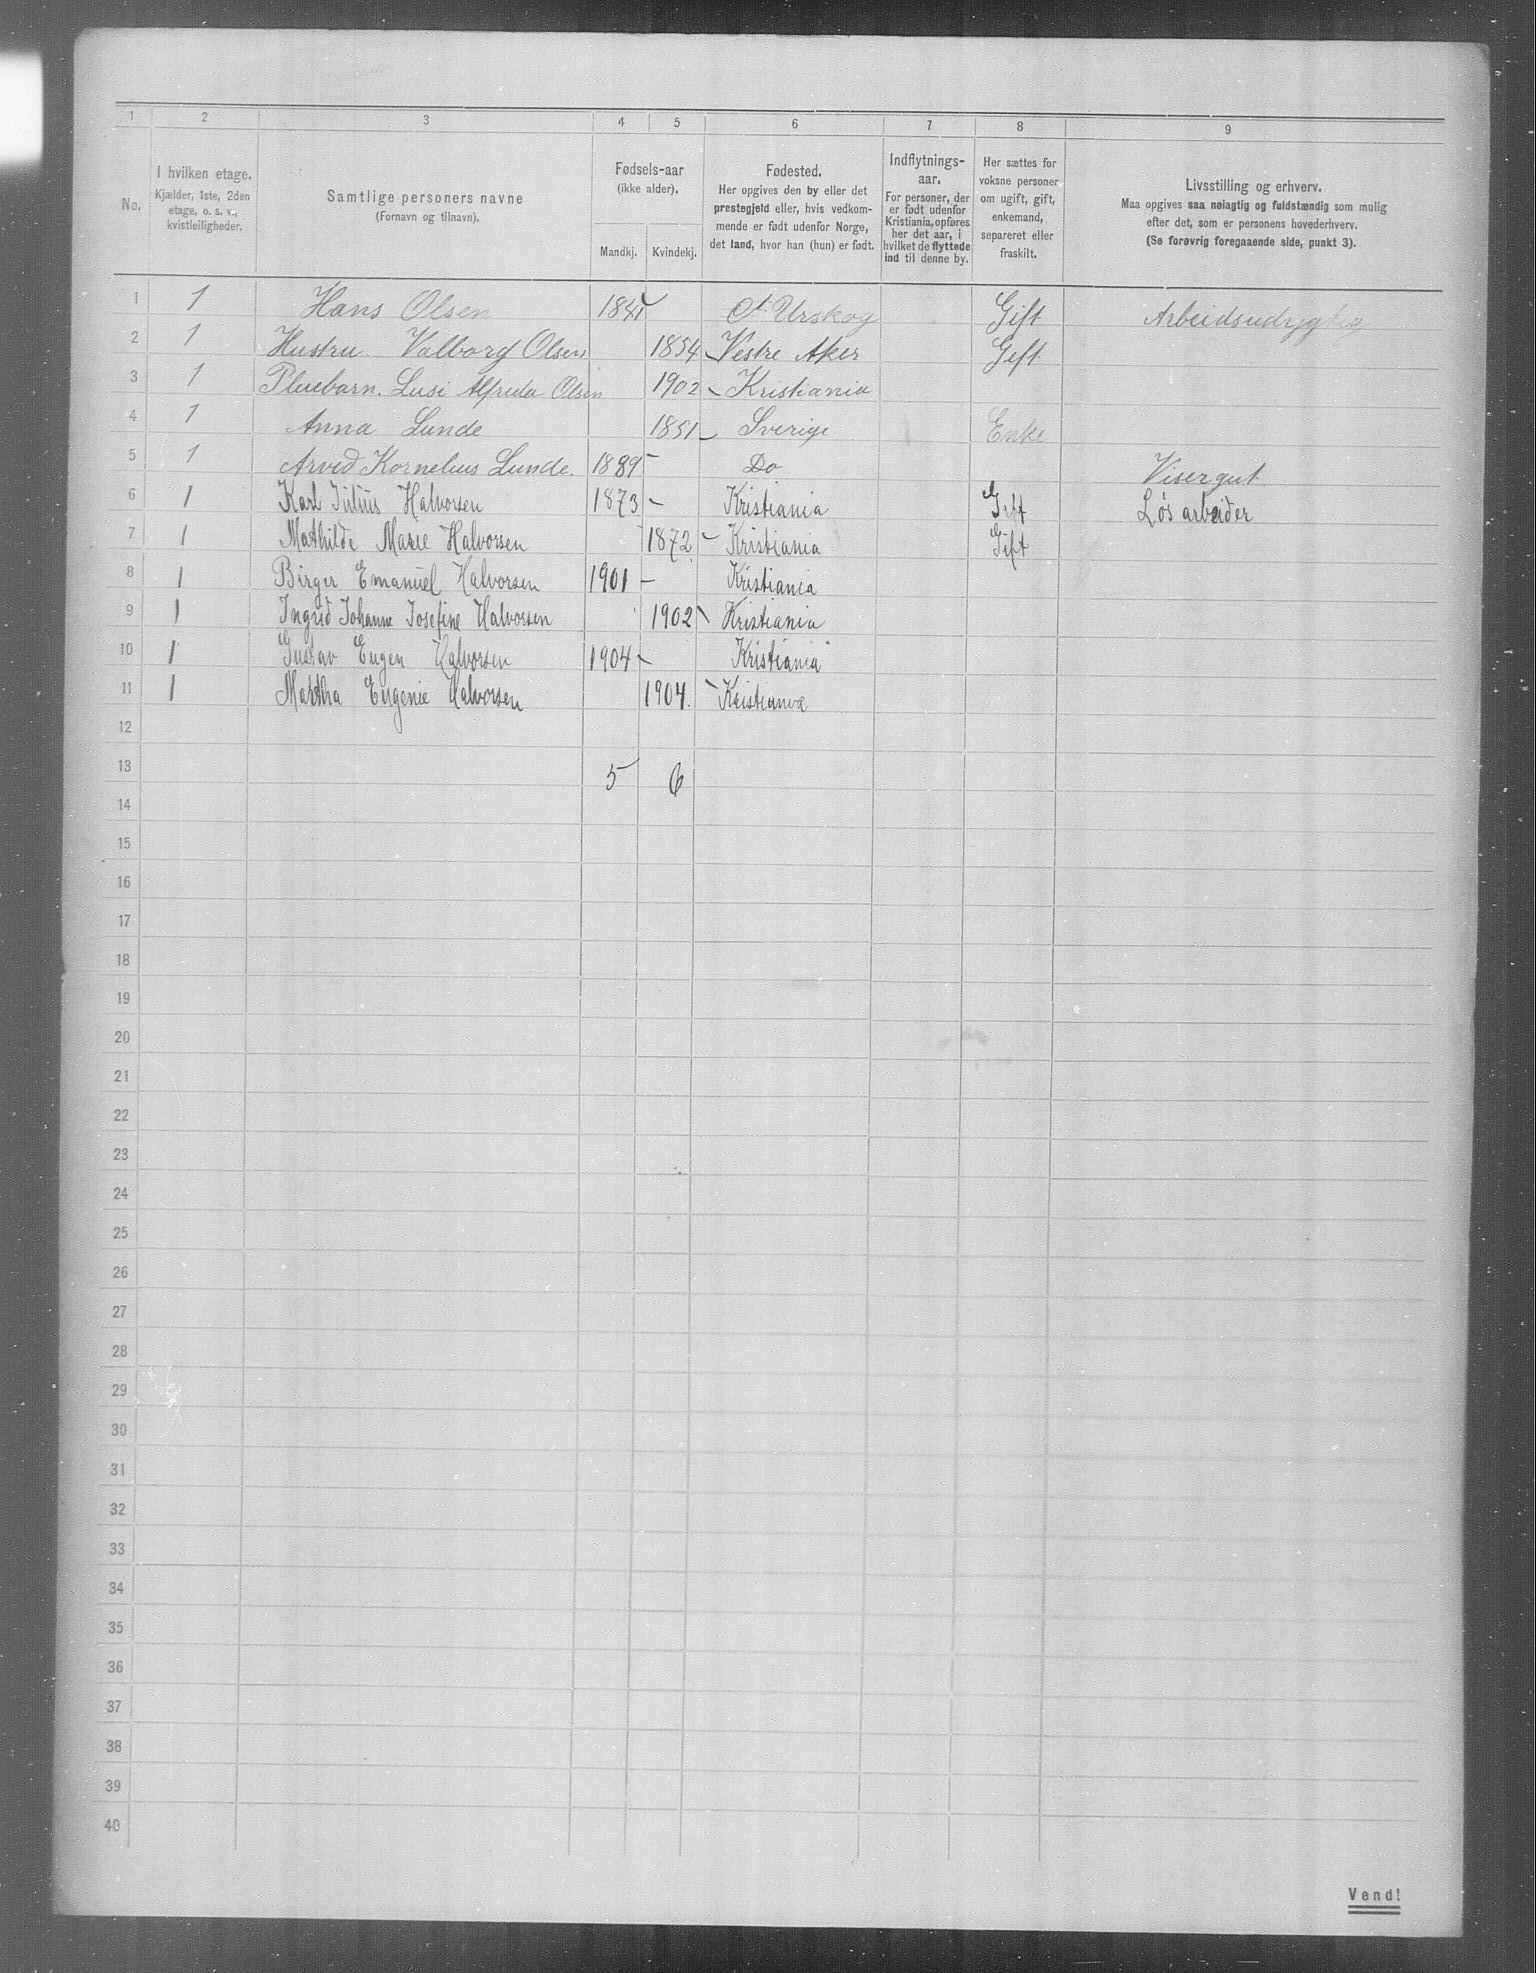 1 2 3 4 5 6 7 8 9
No. I hvilken etage. Kjælder, 1ste, 2den etage, o. s. v., kvistleiligheder. Samtlige personers navne (Fornavn og tilnavn). Fødsels-aar (ikke alder). Mandkj. Kvindekj. Fødested. Her opgives den by eller det prestegjeld eller, hvis vedkommende er født udenfor Norge, det land, hvor han (hun) er født. Indflytnings-aar. For personer, der er født udenfor Kristiania, opføres her det aar, i hvilket de flyttede ind til denne by. Her sættes for voksne personer om ugift, gift, enkemand, separeret eller fraskilt. Livsstilling og erhverv. Maa opgives saa nøiagtig og fuldstændig som mulig efter det, som er personens hovederhverv. (Se forøvrig foregaaende side, punkt 3).
1 1 Hans Olsen 1841 Urskog Gift
2 1 Hustru Valborg Olsen 1854 Vestre Aker Gift
3 1 Pleiebarn. Lusi Alfreda Olsen 1902 Kristiania
4 1 Anna Lunde 1851 Sverige Enke
5 1 Arved Kornelius Lunde. 1889 Do Visergut
6 1 Karl Julius Halvorsen 1873 Kristiania Gift Løsarbeider
7 1 Mathilde Marie Halvorsen 1872 Kristiania Gift
8 1 Birger Emanuel Halvorsen 1901 Kristiania
9 1 Ingrid Johanne Josefine Halvorsen 1902 Kristiania
10 1 Gustav Eugen Halvorsen 1904 Kristiania
11 1 Martha Eugenie Halvorsen 1904. Kristiania
12
13 5 6
14
15
16
17
18
19
20
21
22
23
24
25
26
27
28
29
30
31
32
33
34
35
36
37
38
39
40
Vend!